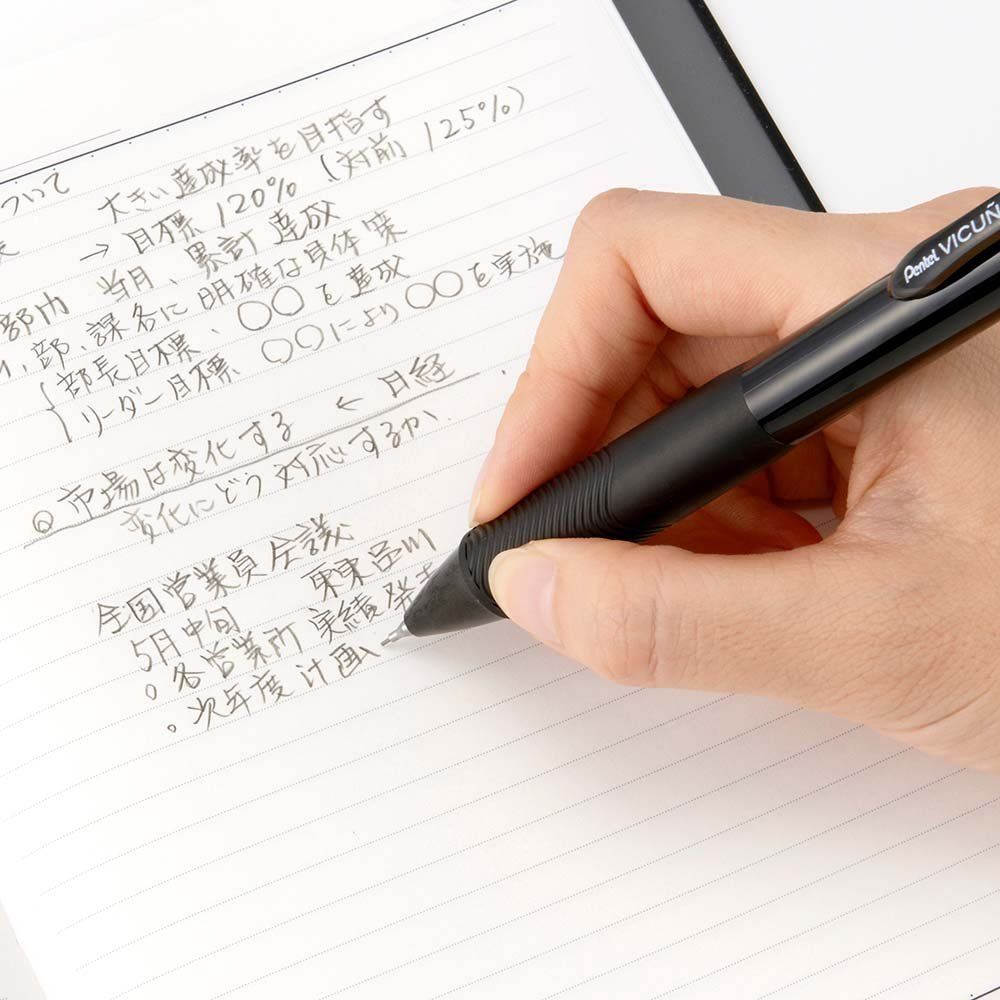 ついて
大きい達成率を目指す
→ 目標 120% (対前 125%)
部内 当月、累計 達成
部、課各に明確な具体策
部長目標、○○を達成
リーダー目標 ○○により○○を実施
◎ 市場は変化する ← 日経
変化にどう対応するか、
全国営業員会議
5月中旬 東京品川
○各営業所 実績発
○次年度計画
Pentel VICUÑ